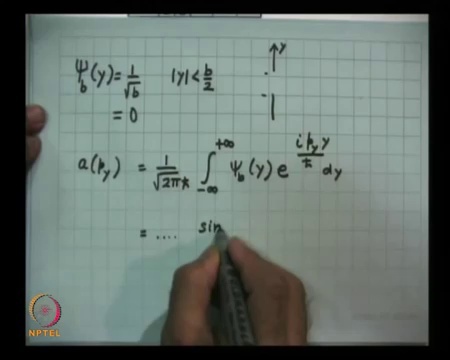 ψ_b(y) = 1/√b |y| < b/2
= 0
y
a(p_y) = 1/√(2πħ) ∫_{-∞}^{+∞} ψ_b(y) e^{i p_y y / ħ} dy
= .... sin
NPTEL